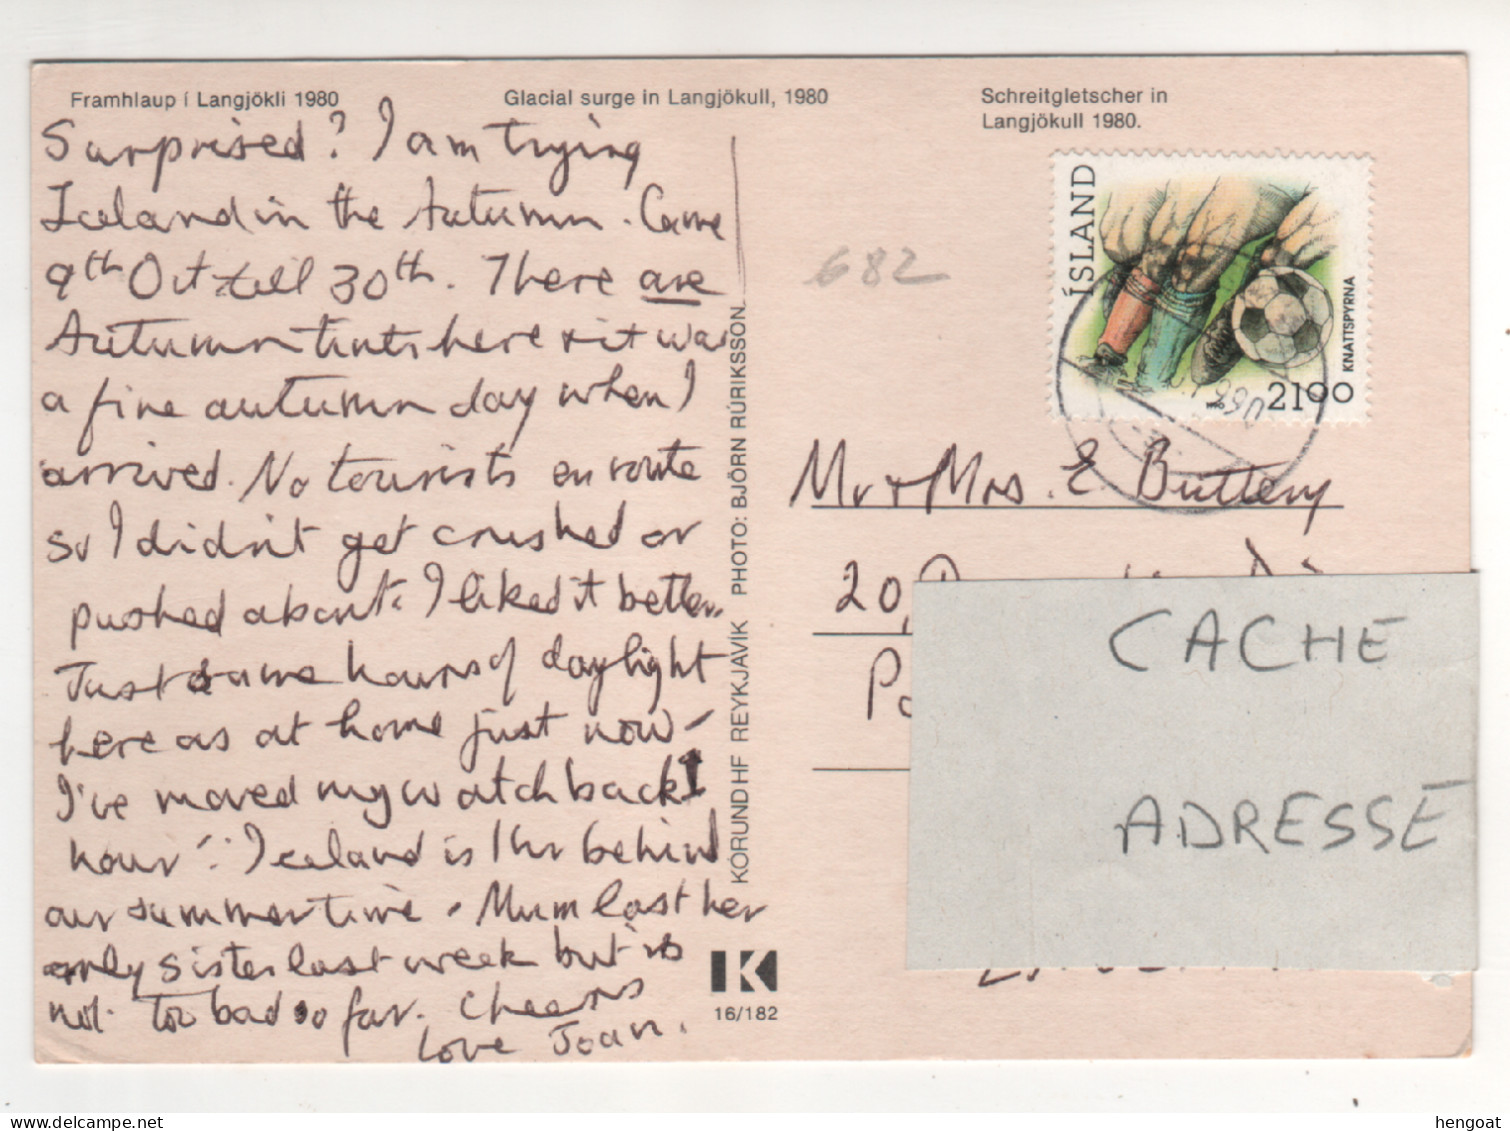 Framhlaup í Langjökli 1980
Glacial surge in Langjökull, 1980
Schreitgletscher in
Langjökull 1980.
Surprised? I am trying
Iceland in the Autumn. Came
9th Oct till 30th. There are
Autumn tints here & it was
a fine autumn day when I
arrived. No tourists en route
so I didn't get crushed or
pushed about. I liked it better.
Just same hours of daylight
here as at home just now -
I've moved my watch back 1
hour : Iceland is 1 hr behind
our summertime. Mum lost her
only sister last week but is
not too bad so far. Cheers
Love Joan.
KÓRUND HF REYKJAVÍK PHOTO: BJÖRN RÚRIKSSON
K
16/182
682
ÍSLAND
KNATTSPYRNA
2100
Mr & Mrs. E. Buttery
20,
CACHE
ADRESSE
hengoat